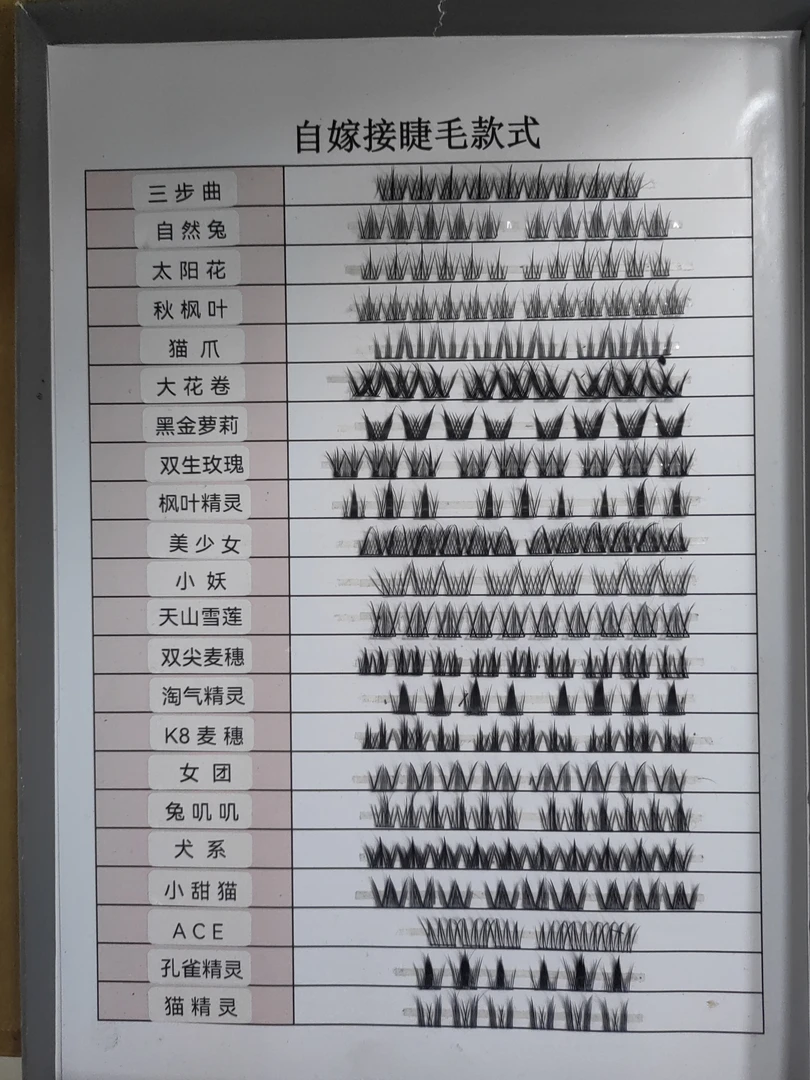 自嫁接睫毛款式
三步曲
自然兔
太阳花
秋枫叶
猫爪
大花卷
黑金萝莉
双生玫瑰
枫叶精灵
美少女
小妖
天山雪莲
双尖麦穗
淘气精灵
K8麦穗
女团
兔叽叽
犬系
小甜猫
ACE
孔雀精灵
猫精灵